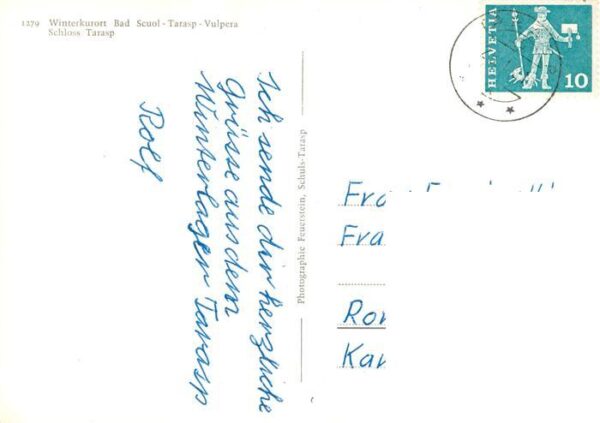 1279 Winterkurort Bad Scuol - Tarasp - Vulpera
Schloss Tarasp
Ich sende dir herzliche
Grüsse aus dem
Winterlager Tarasp
Rolf
Photographie Feuerstein, Schuls-Tarasp
HELVETIA
10